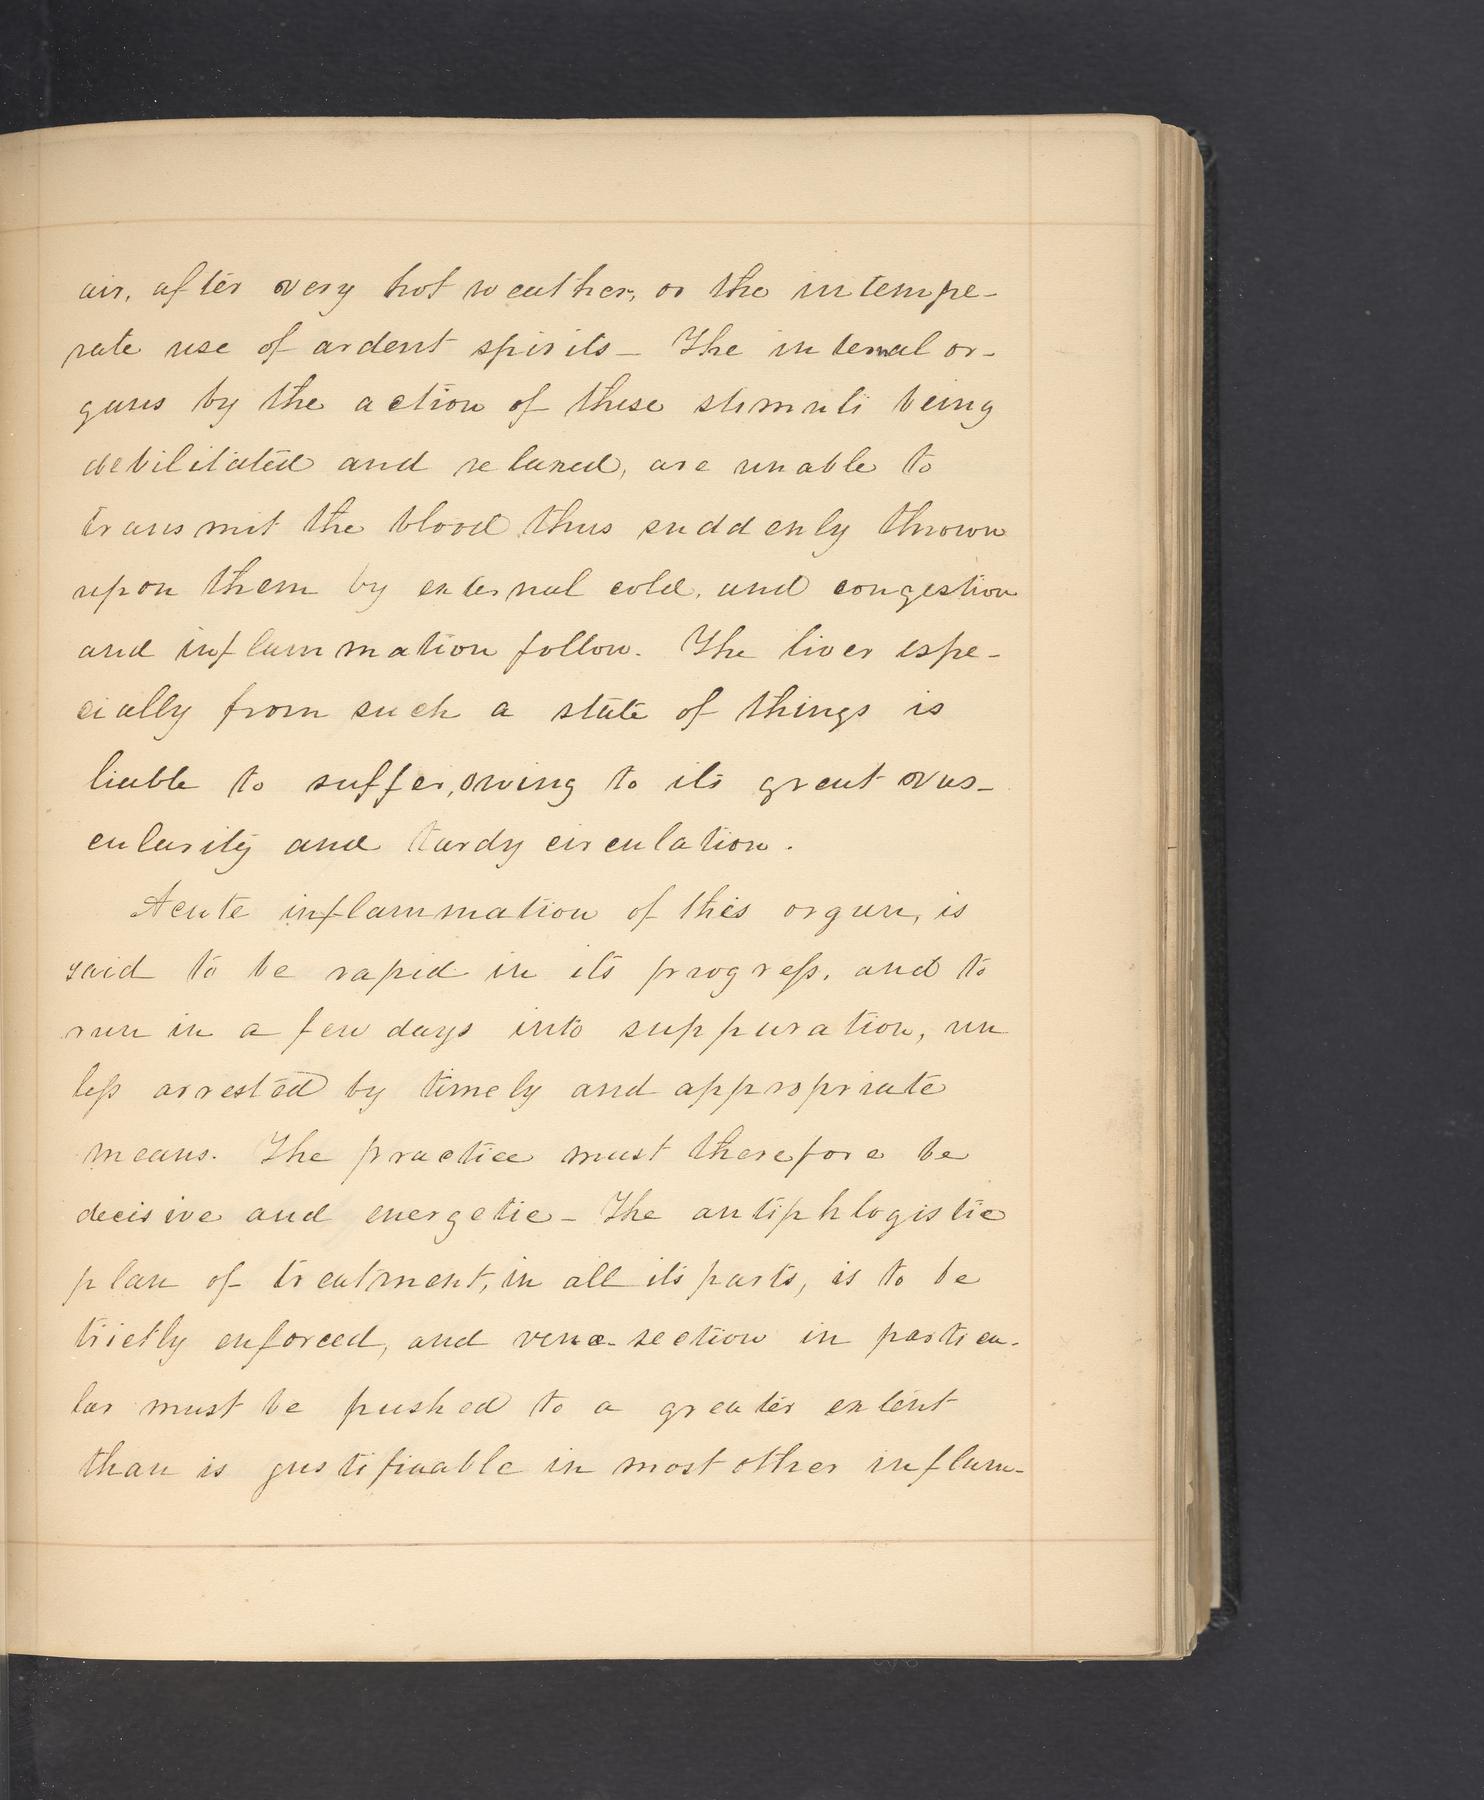 air, after very hot weather, or the intempe-
rate use of ardent spirits - The internal or-
gans by the action of these stimuli being
debilitated and relaxed, are unable to
transmit the blood thus suddenly thrown
upon them by external cold, and congestion
and inflammation follow. The liver espe-
cially from such a state of things is
liable to suffer, owing to its great vas-
cularity and tardy circulation.
Acute inflammation of this organ, is
said to be rapid in its progress, and to
run in a few days into suppuration, un
less arrested by timely and appropriate
means. The practice must therefore be
decisive and energetic - The antiphlogistic
plan of treatment, in all its parts, is to be
trictly enforced, and vene-section in particu-
lar must be pushed to a greater extent
than is justifiable in most other inflam-